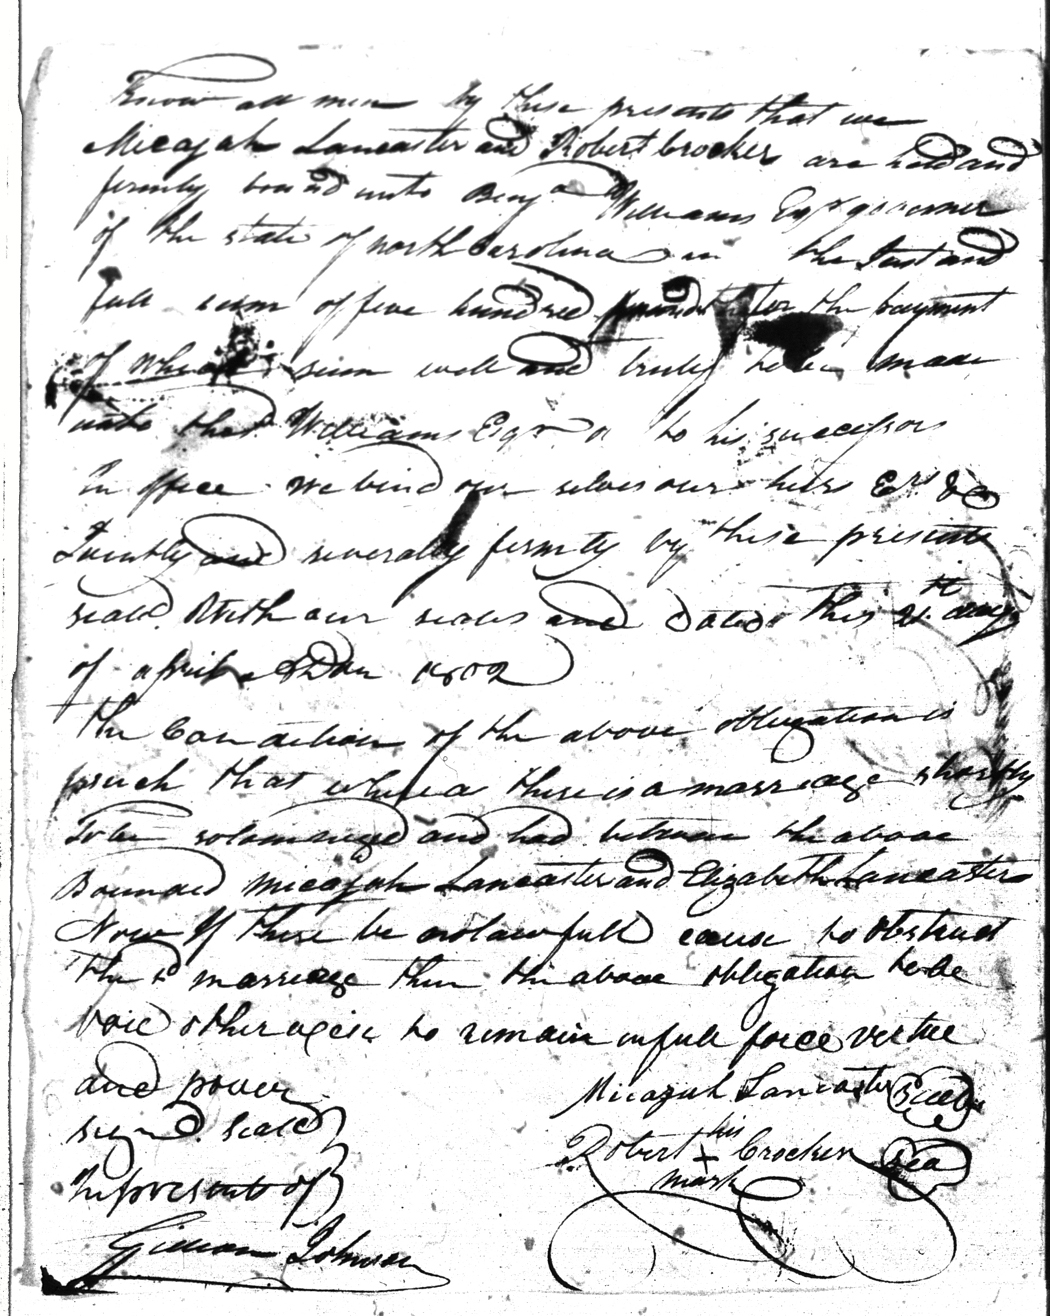 Know all men by these presents that we
Micajah Lancaster and Robert Crocker are held and
firmly bound unto Benja Williams Esqr governer
of the state of north Carolina in the Just and
full sum of five hundred pounds for the payment
of which sum well and truly to be made
unto the sd Williams Esqr or to his successors
In office We bind our selves our heirs Exrs &c
Jointly and severally firmly by these presents
seald With our seals and dated this day
of april ADom 1802
The Condition of the above obligation is
such that whereas there is a marriage shortly
To be solomnized and had between the above
Bounded Micajah Lancaster and Elizabeth Lancaster
Now If there be no lawfull cause to obstruct
The sd marriage then the above obligation to be
void otherwise to remain in full force vertue
and power
signd. Seald
In presents of
Micajah Lancaster Seal
Robert his x mark Crocker Seal
Johnson